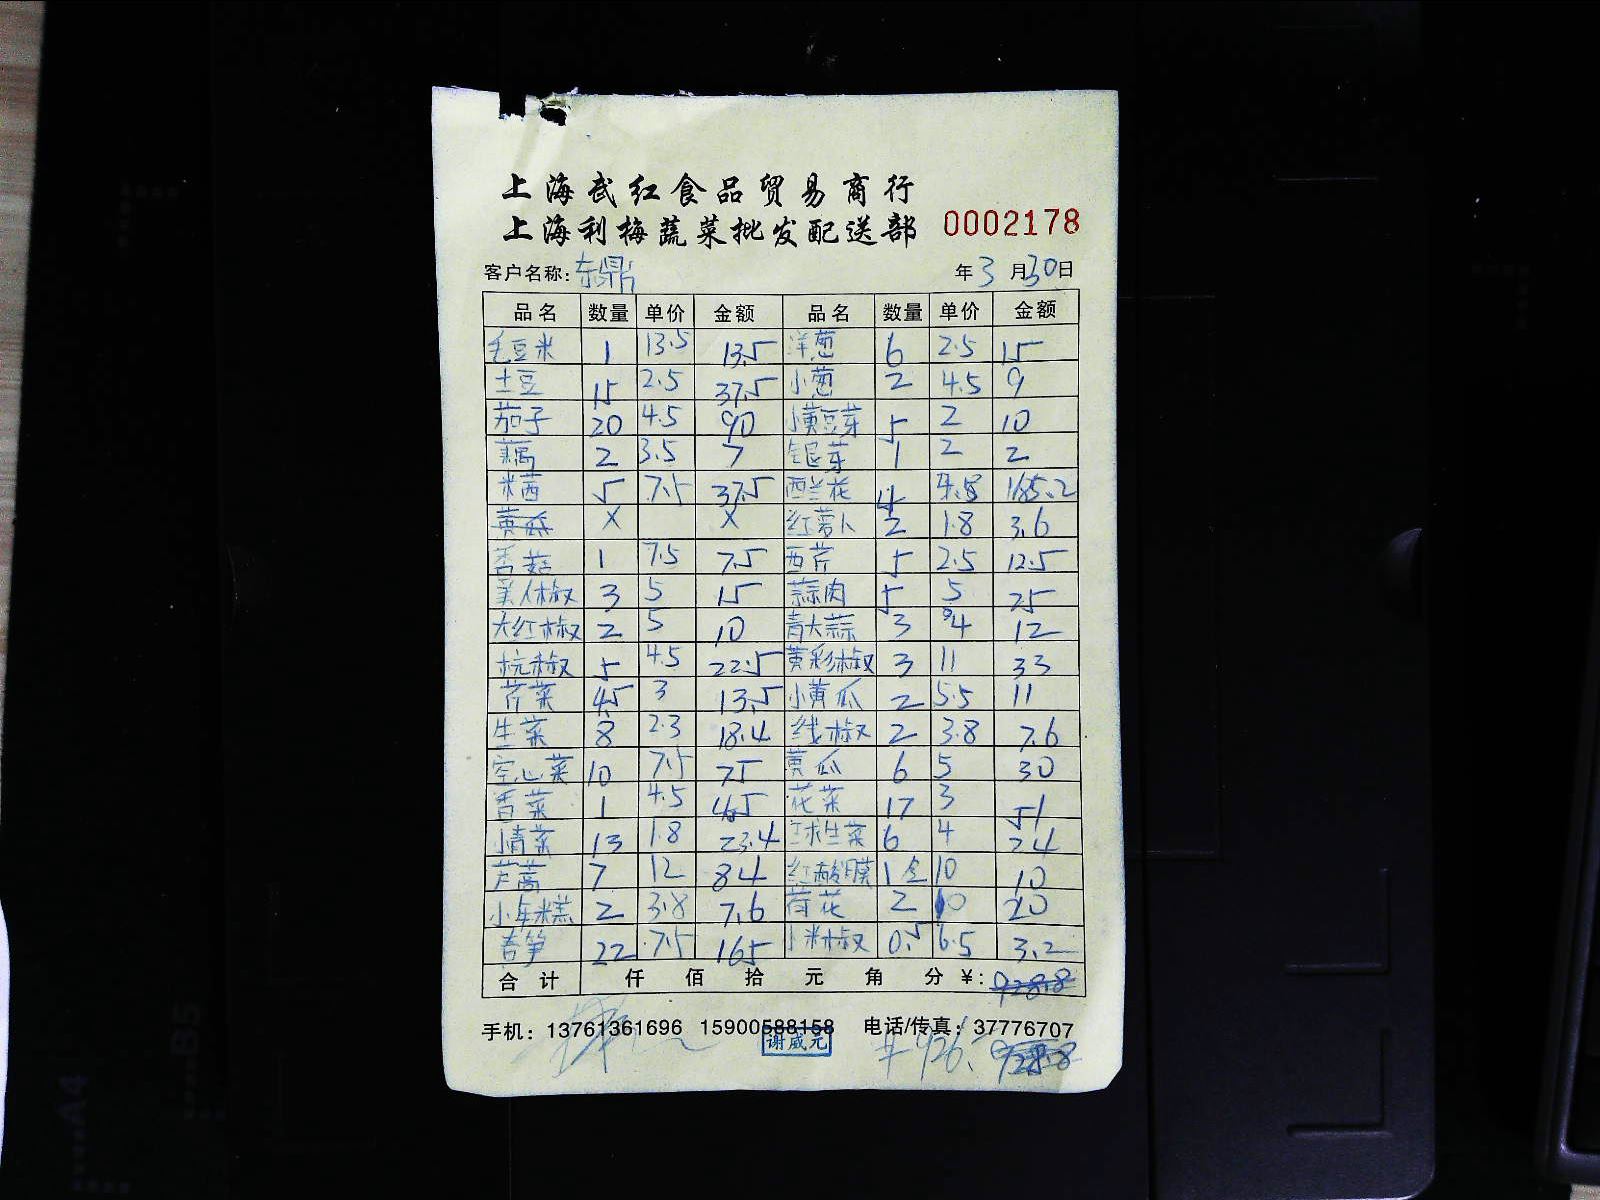 上海武红食品贸易商行
上海利梅蔬菜批发配送部 0002178
客户名称: 东鼎 年 3 月 30 日
品名 数量 单价 金额 品名 数量 单价 金额
毛豆米 1 13.5 13.5 洋葱 6 2.5 15
土豆 15 2.5 37.5 小葱 2 4.5 9
茄子 20 4.5 90 小黄豆芽 5 2 10
藕 2 3.5 7 银芽 1 2 2
米苋 5 7.5 37.5 西兰花 4
黄瓜 X X 红萝卜 2 1.8 3.6
香菇 1 7.5 7.5 西芹 5 2.5 12.5
美人椒 3 5 15 蒜肉 5 5 25
大红椒 2 5 10 青大蒜 3 4 12
杭椒 5 4.5 22.5 黄彩椒 3 11 33
芹菜 4.5 3 13.5 小黄瓜 2 5.5 11
生菜 8 2.3 18.4 线椒 2 3.8 7.6
空心菜 10 7.5 75 黄瓜 6 5 30
香菜 1 4.5 4.5 花菜 17 3 51
小青菜 13 1.8 23.4 球生菜 6 4 24
芦蒿 7 12 84 红酸膜 1盒 10 10
小年糕 2 3.8 7.6 荷花 2 10 20
莴笋 22 7.5 165 小米椒 0.5 6.5 3.2
合计 仟 佰 拾 元 角 分 ¥: 928.8
手机: 13761361696 15900588158 电话/传真: 37776707
谢威元